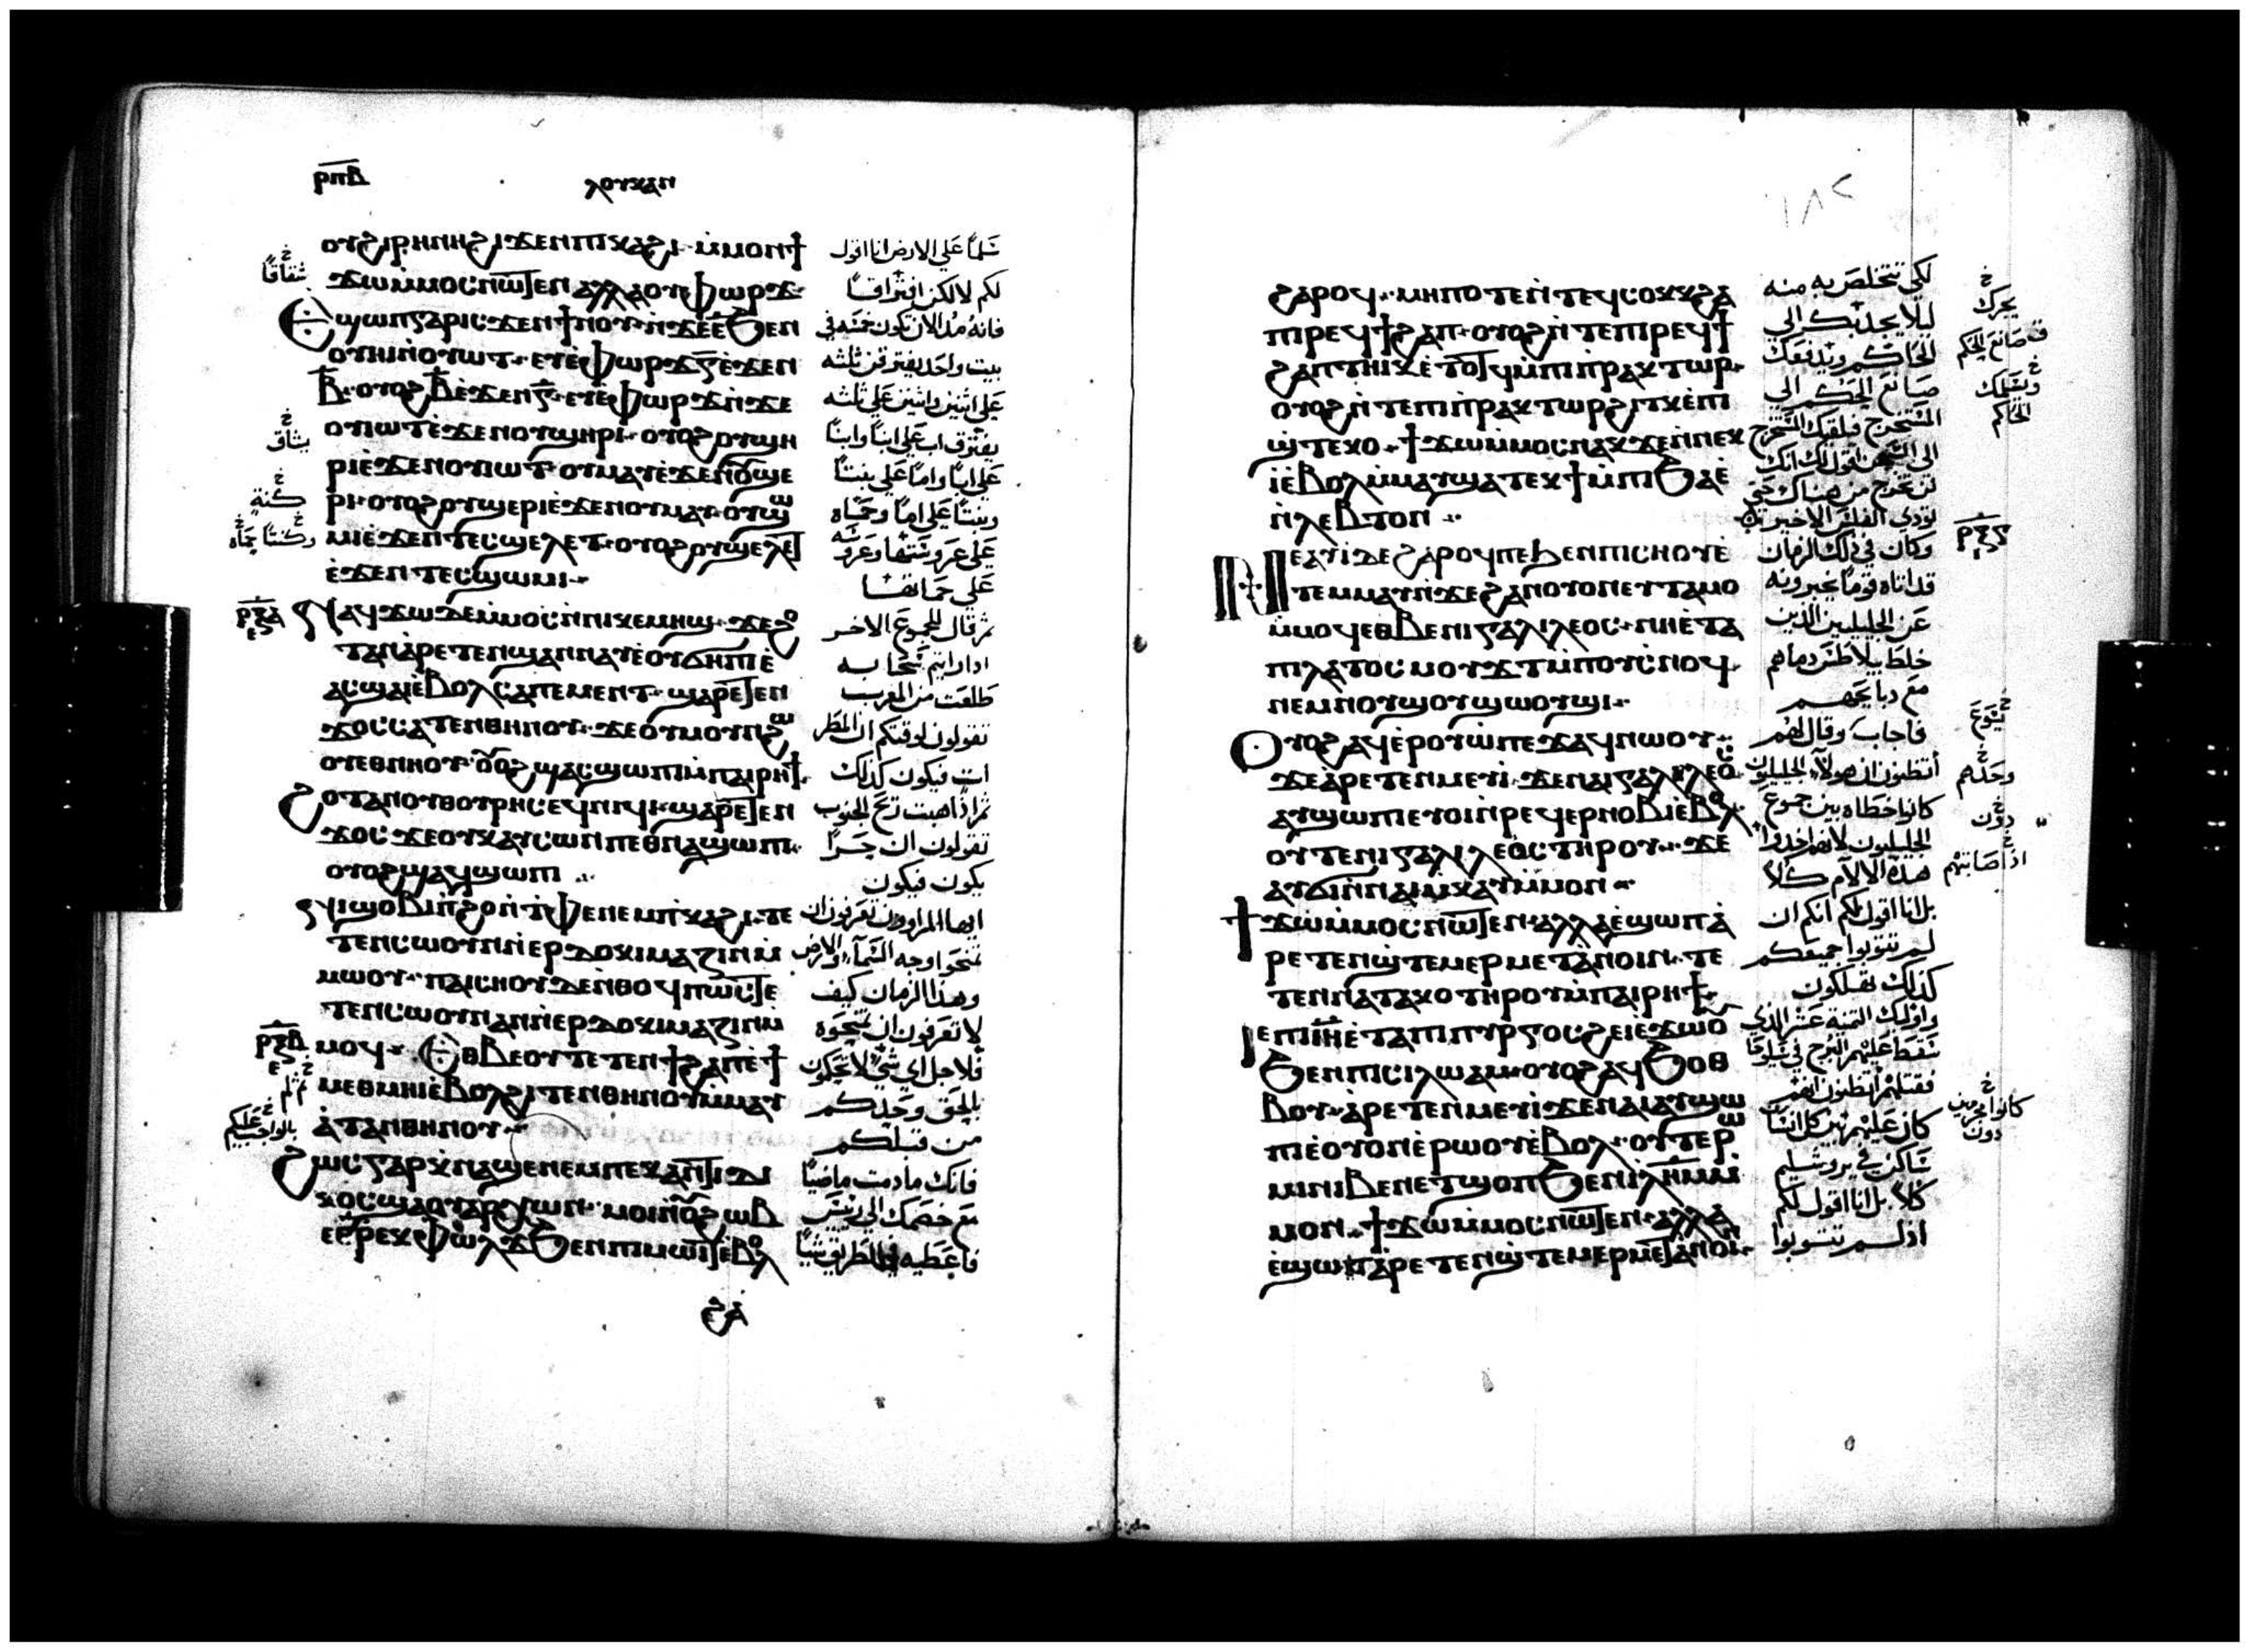 ⲣⲡⲃ
ⲗⲟⲩⲕⲁⲛ
ⲟⲩϩⲓⲣⲏⲛⲏϩⲓϫⲉⲛⲡⲓⲕⲁϩⲓ· ⲙ̀ⲙⲟⲛϯ
ϫⲱⲙ̀ⲙⲟⲥⲛⲱⲧⲉⲛ ⲁⲗⲗⲁⲟⲩⲫⲱⲣϫ·
Ⲉϥϣⲱⲡⲅⲁⲣⲓⲥϫⲉⲛϯⲛⲟⲩ·ⲛ̀ϫⲉⲉ̅ϧⲉⲛ
ⲟⲩⲏⲓⲛ̀ⲟⲩⲱⲧ·ⲉⲩⲉ̀ⲫⲱⲣϫⲅ̅ⲉ̀ϫⲉⲛ
ⲃ̅·ⲟⲩⲟϩⲃ̅ⲉ̀ϫⲉⲛⲅ̅·ⲉⲩⲉ̀ⲫⲱⲣϫⲛ̀ϫⲉ
ⲟⲩⲓⲱⲧⲉ̀ϫⲉⲛⲟⲩϣⲏⲣⲓ·ⲟⲩⲟϩⲟⲩϣⲏ
ⲣⲓⲉ̀ϫⲉⲛⲟⲩⲓⲱⲧ·ⲟⲩⲙⲁⲩⲉ̀ϫⲉⲛⲟⲩϣⲉ
ⲣⲓ·ⲟⲩⲟϩⲟⲩϣⲉⲣⲓⲉ̀ϫⲉⲛⲟⲩⲙⲁⲩ·ⲟⲩϣⲱ
ⲙⲓⲉ̀ϫⲉⲛⲧⲉⲥϣⲉⲗⲉⲧ·ⲟⲩⲟϩⲟⲩϣⲉⲗⲉⲧ
ⲉ̀ϫⲉⲛⲧⲉⲥϣⲱⲙⲓ·
ⲛⲁϥϫⲱⲇⲉⲙ̀ⲙⲟⲥⲛ̀ⲛⲓⲕⲉⲙⲏϣ·ϫⲉϩⲟ
ⲧⲁⲛⲁ̀ⲣⲉⲧⲉⲛϣⲁⲛⲛⲁⲩⲉ̀ⲟⲩϭⲏⲡⲓⲉ̀
ⲁⲥϣⲁⲓⲉ̀ⲃⲟⲗⲥⲁⲡⲉⲙⲉⲛⲧ·ϣⲁⲣⲉⲧⲉⲛ
ϫⲟⲥⲥⲁⲧⲉⲛⲑⲏⲛⲟⲩ·ϫⲉⲟⲩⲙⲟⲩⲛϩⲱ
ⲟⲩⲉⲑⲛⲏⲟⲩ·ⲟⲩⲟϩϣⲁⲥϣⲱⲡⲓⲙ̀ⲡⲁⲓⲣⲏϯ·
ϩⲟⲧⲁⲛⲟⲩⲑⲟⲩⲣⲏⲥⲉϥⲛⲓϥⲓ·ϣⲁⲣⲉⲧⲉⲛ
ϫⲟⲥ·ϫⲉⲟⲩⲕⲁⲩⲥⲱⲛⲡⲉⲑⲛⲁϣⲱⲡⲓ·
ⲟⲩⲟϩϣⲁϥϣⲱⲡⲓ
ⲛⲓϣⲟⲃⲓⲡ̀ϩⲟⲛ̀ⲧ̀ⲫⲉⲛⲉⲙⲡ̀ⲕⲁϩⲓ·ⲧⲉ
ⲧⲉⲛⲥⲱⲟⲩⲛⲛ̀ⲉⲣⲇⲟⲕⲓⲙⲁⲍⲓⲛⲙ̀
ⲙⲱⲟⲩ·ⲡⲁⲓⲥⲏⲟⲩⲇⲉⲛ̀ⲑⲟϥⲡⲱⲥⲧⲉ
ⲧⲉⲛⲥⲱⲟⲩⲛⲁⲛⲛ̀ⲉⲣⲇⲟⲕⲓⲙⲁⲍⲓⲛⲙ̀
ⲙⲟϥ· Ⲉⲑⲃⲉⲟⲩⲧⲉⲧⲉⲛϯϩⲁⲡⲉ̀ϯ
ⲙⲉⲑⲙⲏⲓⲉ̀ⲃⲟⲗϩⲓⲧⲉⲛⲑⲏⲛⲟⲩⲙ̀ⲙⲁⲩ
ⲁ̀ⲧⲁⲛⲑⲏⲛⲟⲩ·
ϩⲱⲥⲅⲁⲣⲭ̀ⲛⲁϣⲉⲛⲉⲙⲡⲉⲕⲁⲛⲧⲓⲇⲓ
ⲕⲟⲥϣⲁⲟⲩⲁⲣⲭⲱⲛ·ⲙⲟⲓⲛ̀ⲟⲩϩⲱⲃ
ⲉⲣⲣⲉⲕⲫⲱⲗϫϧⲉⲛⲡⲓⲙⲱⲓⲧⲉ̀ⲃⲟⲗ
ϩⲁ
شلما على الارض انا اقول
لكم لا لكن افتراقًا
فانه مد الان تكون خمسه في
بيت واحد يفترقن ثلثه
على اثنين واثنين على ثلثه
يفترق اب على ابنًا وابنًا
على ابًا وامًا على بنتًا
وبنتًا على امًا وحماه
على عروستها وعروسه
على حماتها
ثم قال للجموع الاخر
اذا رايتم سحابه
طلعت من المغرب
تقولون لوقتكم ان المطر
ات فيكون كذلك
ثم اذا هبت ريح الجنوب
تقولون ان حرًا
يكون فيكون
ايها المراوون تعرفون ان
تمتحنوا وجه السماء والارض
وهذا الزمان كيف
لا تعرفون ان تمتحنوه
فلاجل اي شي لا تحكمون
بالحق وحدكم
من قبلكم
فانك ما دمت ماضيًا
مع خصمك الى رئيس
فاعطيه في الطريق شيئًا
شقاقًا
يشاق
كنة
ⲣⲝⲁ
ⲣⲝⲃ
١٨٢
ϩⲁⲣⲟϥ·ⲙⲏⲡⲟⲧⲉⲛ̀ⲧⲉϥⲥⲟⲕⲕϩⲁ
ⲡⲓⲣⲉϥϯϩⲁⲡ·ⲟⲩⲟϩⲛ̀ⲧⲉⲡⲓⲣⲉϥϯ
ϩⲁⲡⲧⲏⲓⲕⲉ̀ⲧⲟⲧϥⲙ̀ⲡⲓⲡ̀ⲣⲁⲕⲧⲱⲣ·
ⲟⲩⲟϩⲛ̀ⲧⲉⲡⲓⲡ̀ⲣⲁⲕⲧⲱⲣϩⲓⲧⲕⲉ̀ⲡⲓ
ϣ̀ⲧⲉⲕⲟ·ϯϫⲱⲙ̀ⲙⲟⲥⲛⲁⲕϫⲉⲛ̀ⲛⲉⲕ
ⲓ̀ⲉ̀ⲃⲟⲗⲙ̀ⲙⲁⲩϣⲁⲧⲉⲕϯⲙ̀ⲡⲓϧⲁⲉ̀
ⲛ̀ⲗⲉⲃⲧⲟⲛ
Ⲛⲉⲁⲩⲓ̀ⲇⲉϩⲁⲣⲟϥⲡⲉϧⲉⲛⲡⲓⲥⲏⲟⲩⲉ̀
ⲧⲉⲙⲙⲁⲩⲛ̀ϫⲉϩⲁⲛⲟⲩⲟⲛⲉⲩⲧⲁⲙⲟ
ⲙ̀ⲙⲟϥⲉⲑⲃⲉⲛⲓⲅⲁⲗⲓⲗⲉⲟⲥ·ⲛⲏⲉ̀ⲧⲁ
ⲡⲓⲗⲁⲧⲟⲥⲙⲟⲩϫⲧⲙ̀ⲡⲟⲩⲥ̀ⲛⲟϥ·
ⲛⲉⲙⲛⲟⲩϣⲟⲩϣⲱⲟⲩϣⲓ·
Ⲟⲩⲟϩⲁϥⲉ̀ⲣⲟⲩⲱ̀ⲡⲉϫⲁϥⲛⲱⲟⲩ·
ϫⲉⲁ̀ⲣⲉⲧⲉⲛⲙⲉⲩⲓ̀·ϫⲉⲛⲁⲓⲅⲁⲗⲓⲗⲉⲟⲥ·
ⲁⲩϣⲱⲡⲓⲉⲩⲟⲓⲛ̀ⲣⲉϥⲉⲣⲛⲟⲃⲓⲉ̀ⲃⲟⲗ
ⲟⲩⲧⲉⲛⲓⲅⲁⲗⲓⲗⲉⲟⲥⲧⲏⲣⲟⲩ·ϫⲉ
ⲁⲩϭⲓⲛ̀ⲛⲁⲓⲙ̀ⲕⲁⲩϩⲙ̀ⲙⲟⲛ
ϯϫⲱⲙ̀ⲙⲟⲥⲛⲱⲧⲉⲛ·ⲁⲗⲗⲁⲉ̀ϣⲱⲡⲁ̀
ⲣⲉⲧⲉⲛϣ̀ⲧⲉⲙⲉⲣⲙⲉⲧⲁⲛⲟⲓⲛ·ⲧⲉ
ⲧⲉⲛⲛⲁⲧⲁⲕⲟⲧⲏⲣⲟⲩⲙ̀ⲡⲁⲓⲣⲏϯ·
ⲓⲉⲡⲓⲓⲏ̅ⲉ̀ⲧⲁⲡⲓⲡⲩⲣⲅⲟⲥϩⲉⲓⲉ̀ϫⲱⲟⲩ
ϧⲉⲛⲡⲓⲥⲓⲗⲱⲁⲙ·ⲟⲩⲟϩⲁϥϧⲟⲑ
ⲃⲟⲩ·ⲁ̀ⲣⲉⲧⲉⲛⲙⲉⲩⲓ̀ϫⲉⲛⲁⲓⲁⲩϣⲱ
ⲡⲓⲉ̀ⲟⲩⲟⲛⲉ̀ⲣⲱⲟⲩⲉ̀ⲃⲟⲗ·ⲟⲩⲧⲉⲣⲱ
ⲙⲓⲛⲓⲃⲉⲛⲉⲧϣⲟⲡϧⲉⲛⲓⲗⲏⲙⲙ̀
ⲙⲟⲛ·ϯϫⲱⲙ̀ⲙⲟⲥⲛⲱⲧⲉⲛ·ⲁⲗⲗⲁ
ⲉ̀ϣⲱⲡⲁ̀ⲣⲉⲧⲉⲛϣ̀ⲧⲉⲙⲉⲣⲙⲉⲧⲁⲛⲟⲓⲛ·
لكي تتخلص به منه
ليلا يجذبك الى
الحاكم ويدفعك
صانع الحكم الى
المستخرج فيلقيك المستخرج
الى السجن اقول لك انك
لن تخرج من هناك حتى
تودى الفلس الاخير
وكان في ذلك الزمان
قد اتاه قومًا يخبرونه
عن الجليليين الذين
خلط بيلاطس دماهم
مع دبايحهم
فاجاب وقال لهم
أتظنون ان هولاء الجليليون
كانوا خطاه بين جموع
الجليليون لانهم اخذوا
هذه الالام كلا
بل انا اقول لكم انكم ان
لم تتوبوا جميعكم
كذلك تهلكون
واوليك الثمنية عشر الذي
سقط عليهم البرج في سيلوحا
فقتلهم أتظنون انهم
كان عليهم دين كل انسان
ساكن في يروشليم
كلا بل انا اقول لكم
اذ لم تتوبوا
ⲣⲝⲅ
يجرك
الحاكم
وحدهم
دون
اذ اصابتهم